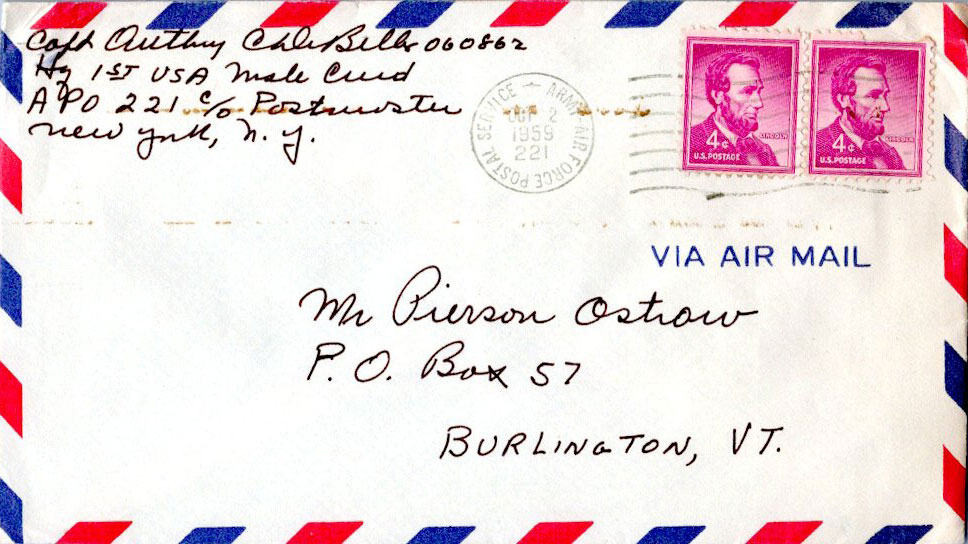 Capt Anthny Ch
060862
Hq 1ST USA Msle Cmd
APO 221 c/o Postmaster
New York, N.Y.
ARMY AIR FORCE POSTAL SERVICE
2
1959
221
LINCOLN
4¢
U.S. POSTAGE
LINCOLN
4¢
U.S. POSTAGE
VIA AIR MAIL
Mr Pierson Ostrow
P. O. Box 57
BURLINGTON, VT.